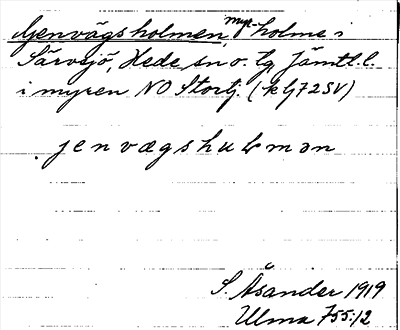 Genvägsholmen, myr-holme i
Särvsjö, Hede sn o. tg Jämtl. l.
i myren NO Stortj. (kly72SV)
jenvægshulmən
S. Åsander 1919
Ulma 755:12